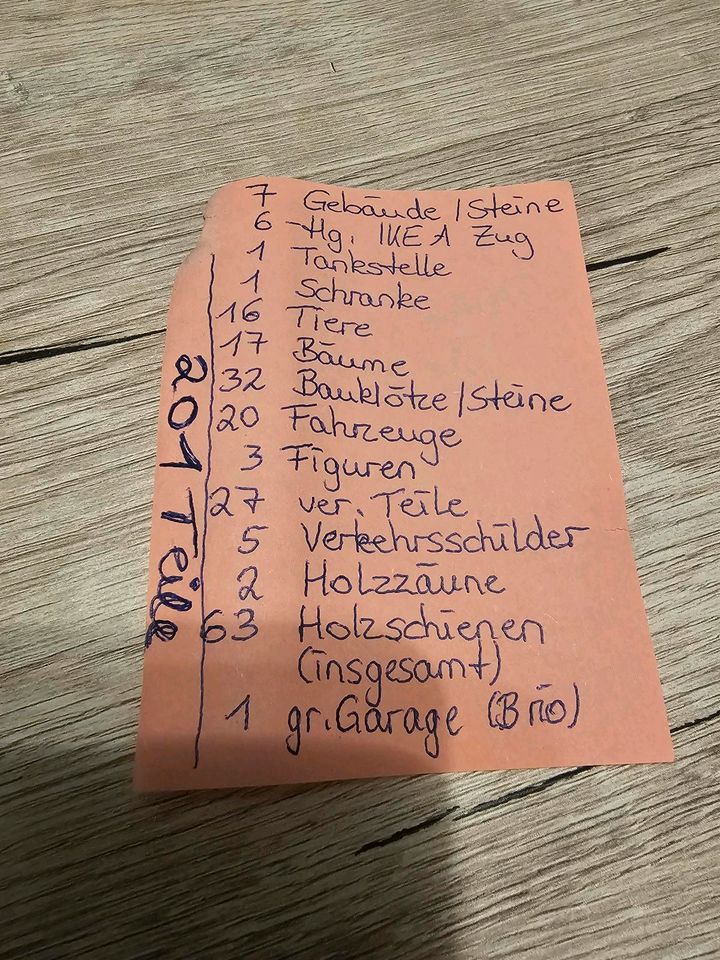 7 Gebäude/Steine
6 -tlg. IKEA Zug
1 Tankstelle
1 Schranke
16 Tiere
17 Bäume
32 Bauklötze/Steine
20 Fahrzeuge
3 Figuren
27 ver. Teile
5 Verkehrsschilder
2 Holzzäune
63 Holzschienen
(insgesamt)
1 gr. Garage (Brio)
201 Teile